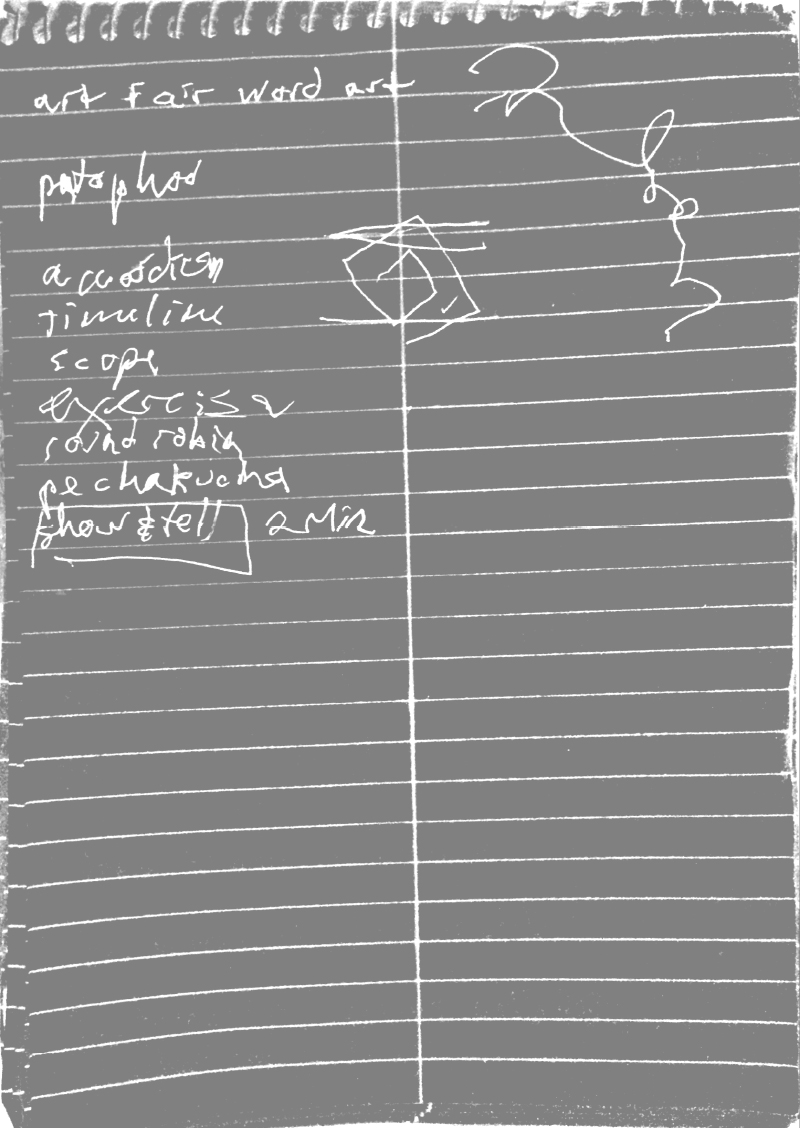 art fair word art
accordion
timeline
scope
exercise
round robin
pechakucha
show & tell 2 Min